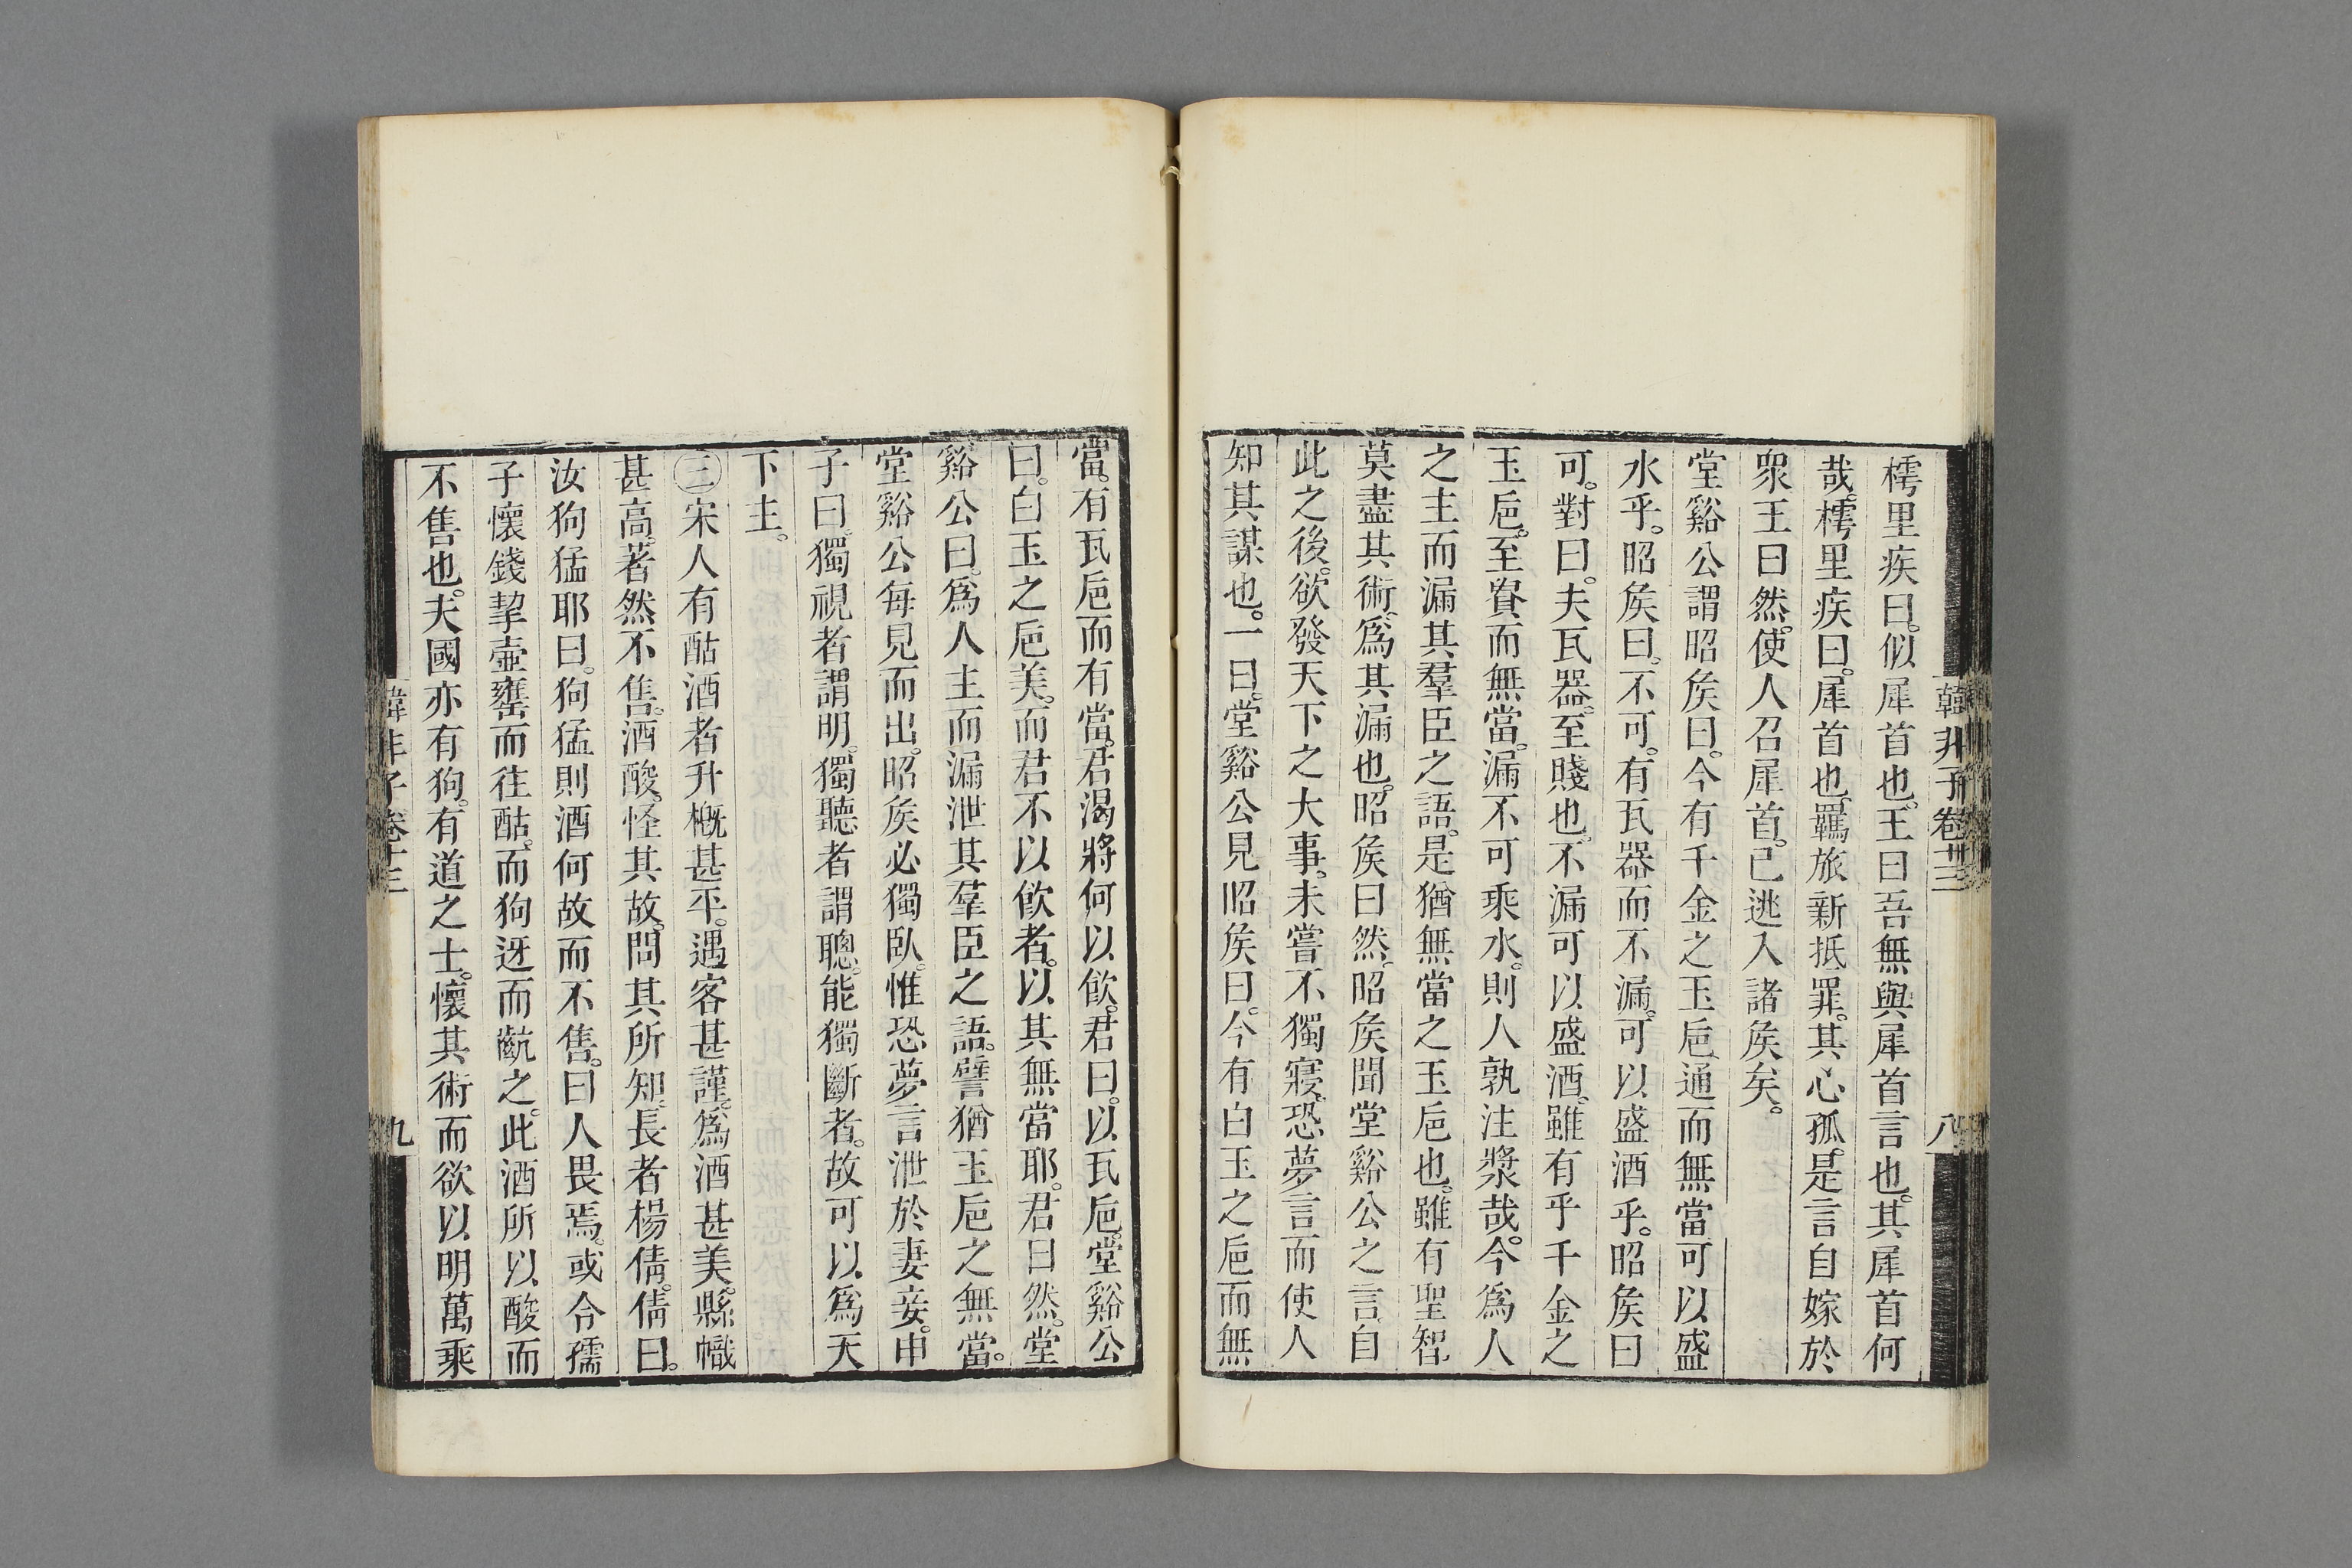 韓非子卷十三
八
樗里疾曰。似犀首也。王曰吾無與犀首言也。其犀首何
哉。樗里疾曰。犀首也。羈旅新抵罪。其心孤。是言自嫁於
衆王曰然。使人召犀首。已逃入諸矦矣。
堂谿公謂昭矦曰。今有千金之玉巵。通而無當。可以盛
水乎。昭矦曰。不可。有瓦器而不漏。可以盛酒乎。昭矦曰
可。對曰。夫瓦器。至賤也。不漏可以盛酒。雖有乎千金之
玉巵。至貴而無當。漏不可乘水。則人孰注漿哉。今爲人
之主而漏其羣臣之語。是猶無當之玉巵也。雖有聖智
莫盡其術。爲其漏也。昭矦曰然。昭矦聞堂谿公之言。自
此之後。欲發天下之大事。未嘗不獨寢。恐夢言而使人
知其謀也。一曰。堂谿公見昭矦曰。今有白玉之巵而無
當。有瓦巵而有當。君渴將何以飮。君曰。以瓦巵。堂谿公
曰。白玉之巵美。而君不以飮者。以其無當耶。君曰然。堂
谿公曰。爲人主而漏泄其羣臣之語。譬猶玉巵之無當。
堂谿公每見而出。昭矦必獨臥。惟恐夢言泄於妻妾。申
子曰。獨視者謂明。獨聽者謂聰。能獨斷者。故可以爲天
下主。
㊂宋人有酤酒者升槪甚平。遇客甚謹。爲酒甚美。縣幟
甚高。著然不售。酒酸。怪其故。問其所知。長者楊倩。倩曰。
汝狗猛耶曰。狗猛則酒何故而不售。曰人畏焉。或令孺
子懷錢挈壷罋而往酤。而狗迓而齕之。此酒所以酸而
不售也。夫國亦有狗。有道之士。懷其術而欲以明萬乘
韓非子卷十三
九